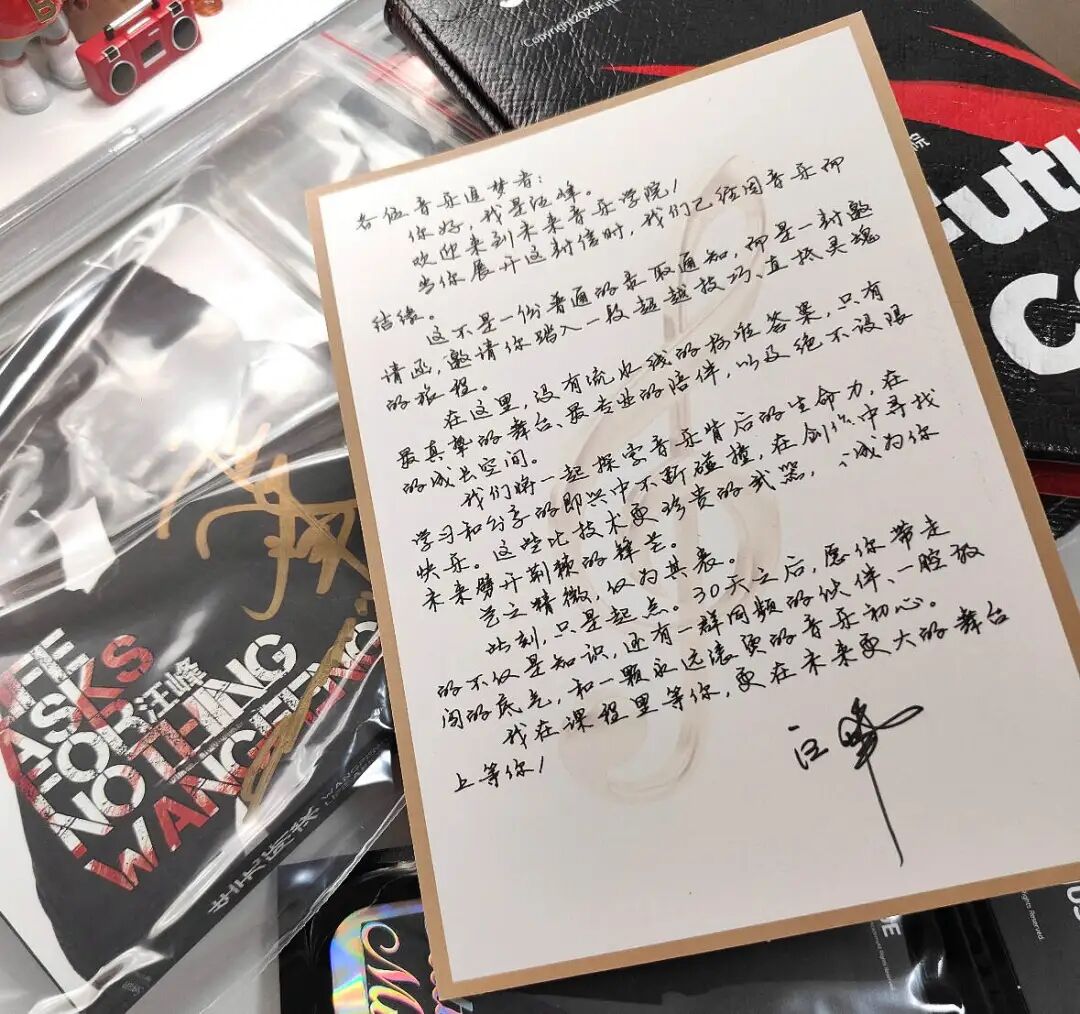 Copyright2025Fut
Futu
co
各位音乐追梦者：
你好，我是汪峰。
欢迎来到未来音乐学院！
当你展开这封信时，我们已经因音乐而
结缘。
这不是一份普通的录取通知，而是一封邀
请函，邀请你踏入一段超越技巧、直抵灵魂
的旅程。
在这里，没有流水线的标准答案，只有
最真挚的舞台、最专业的陪伴，以及绝不设限
的成长空间。
我们将一起探索音乐背后的生命力，在
学习和分享的即兴中不断碰撞，在创作中寻找
快乐。这些比技术更珍贵的武器，
成为你
未来劈开荆棘的锋芒。
艺之精微，仅为其表。
此刻，只是起点。30天之后，愿你带走
的不仅是知识，还有一群同频的伙伴、一腔敢
闯的底气，和一颗永远滚烫的音乐初心。
我在课程里等你，更在未来更大的舞台
上等你！
汪峰
HE
ASKS
FOR汪峰
NOTHING
WANGFENG
Rights Reserved